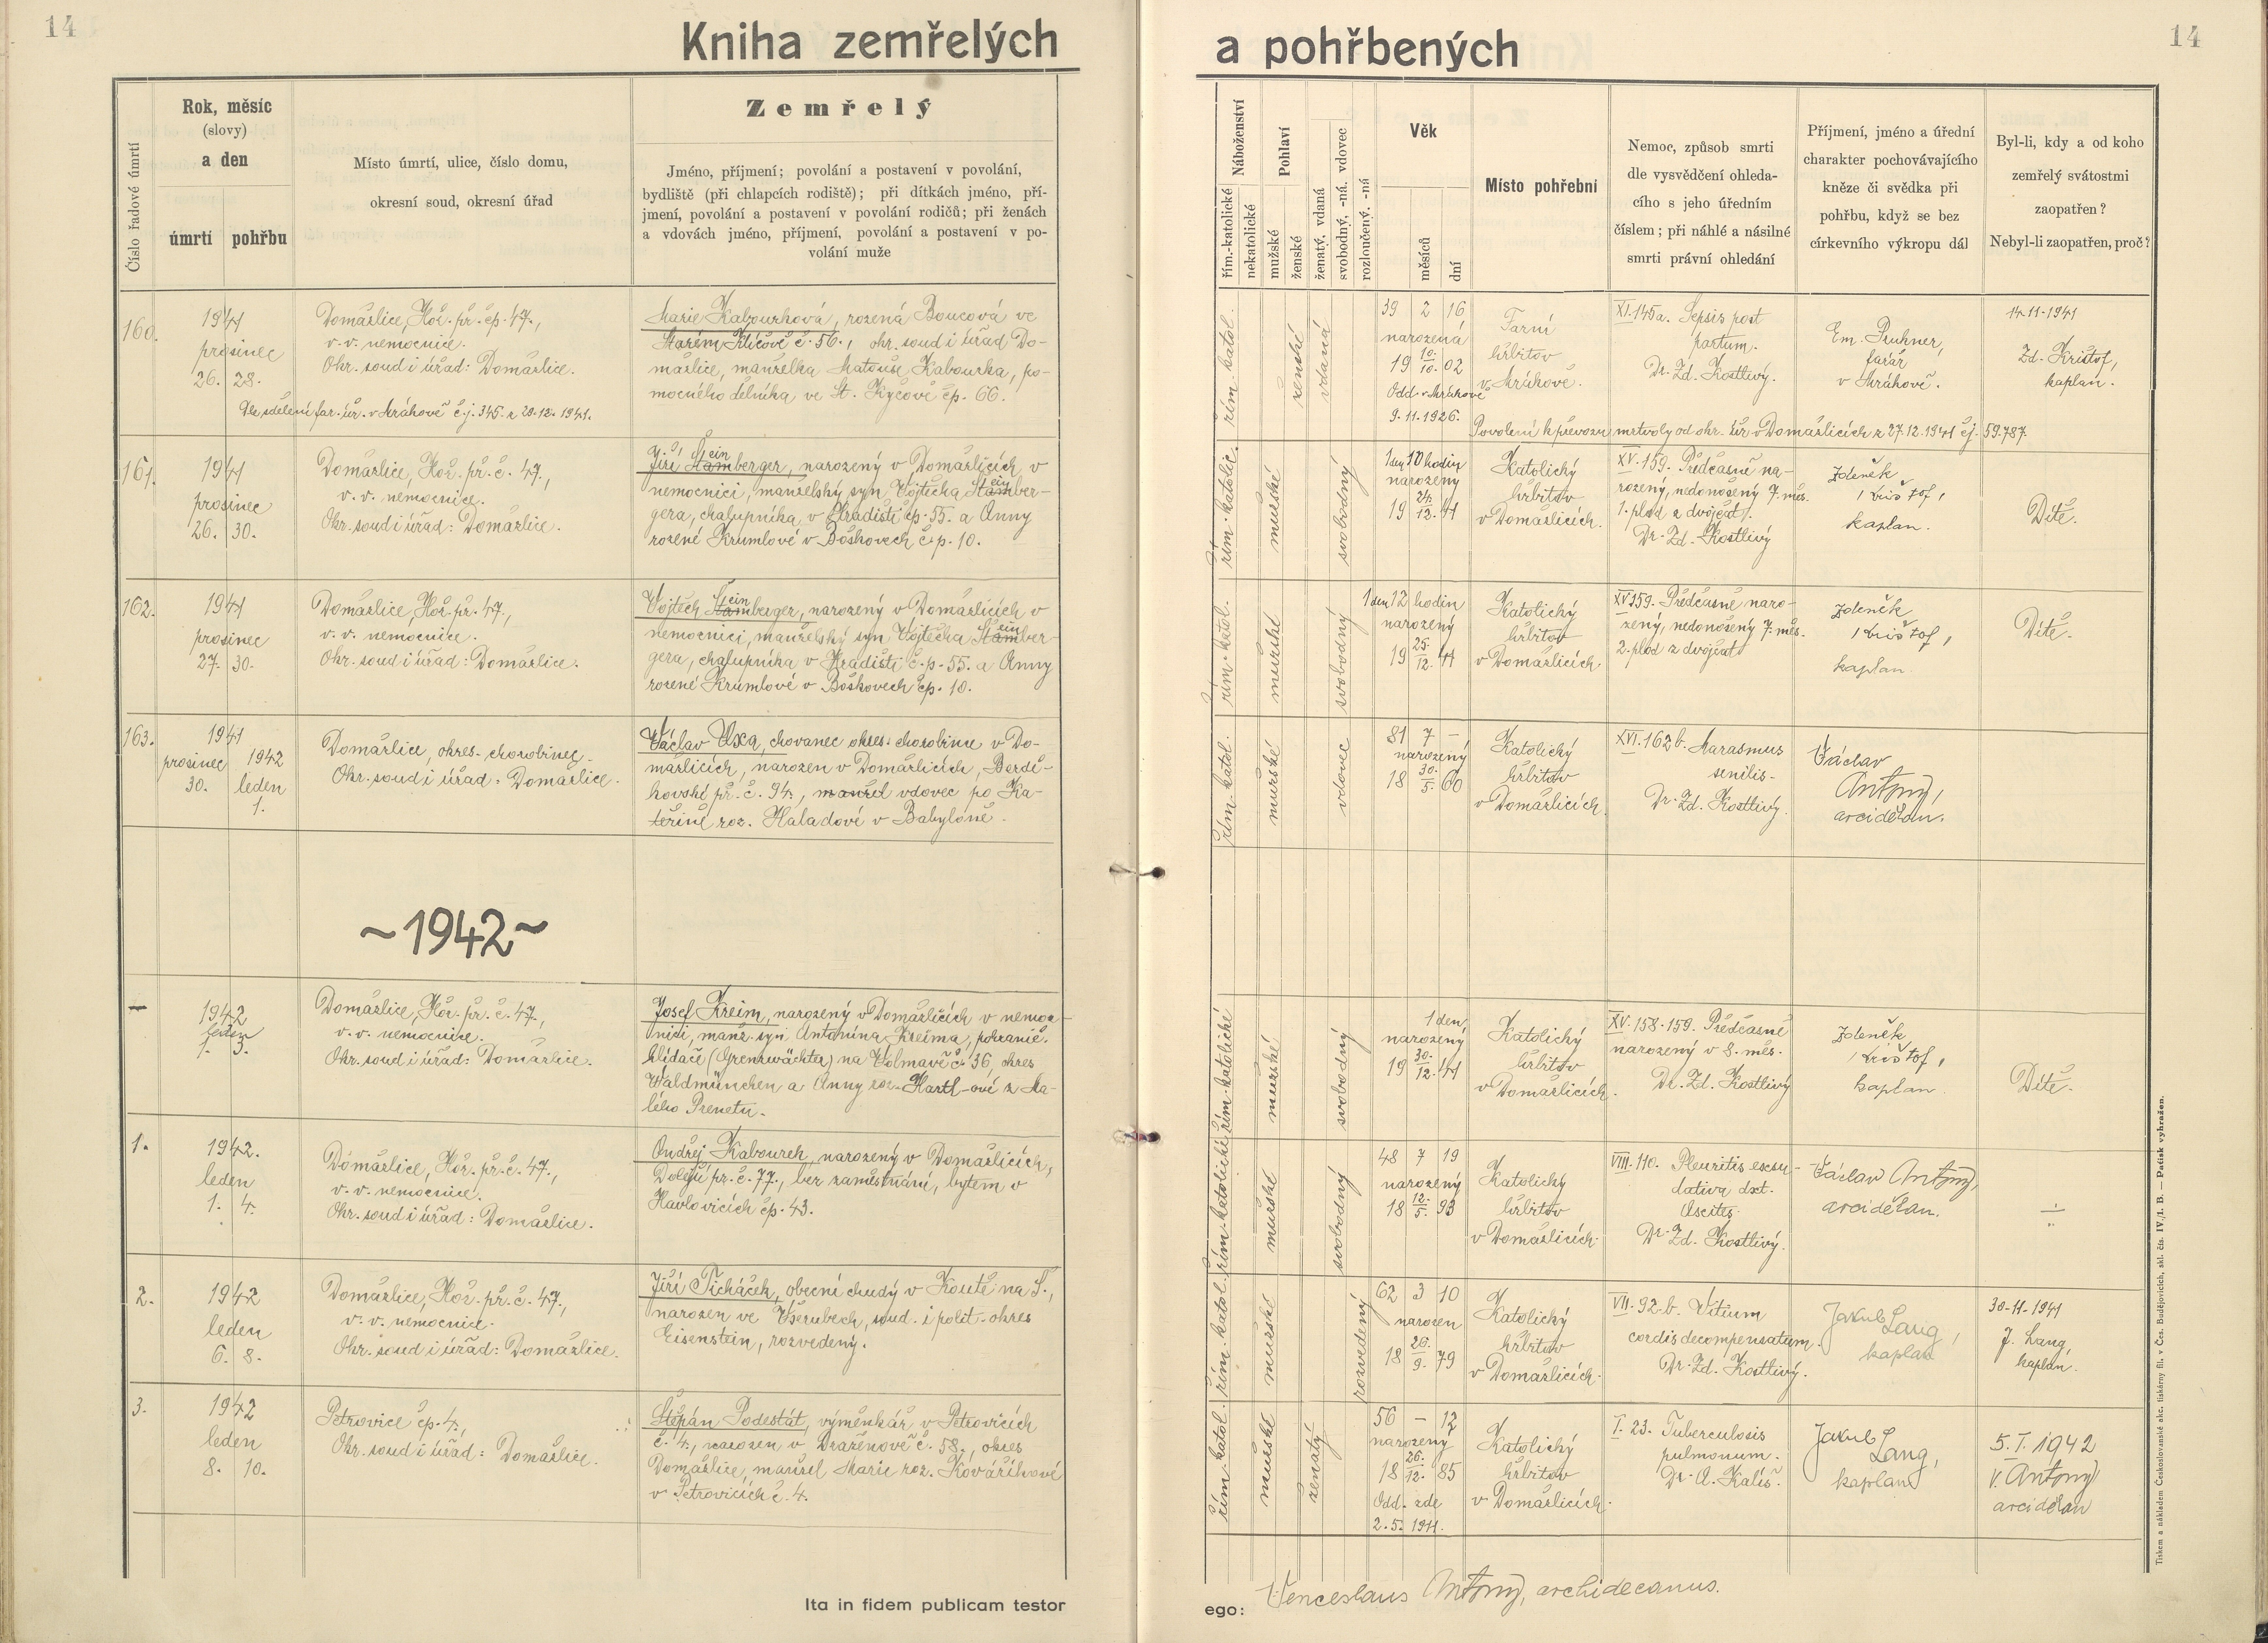 14
Kniha zemřelých
Číslo řadové úmrtí
Rok, měsíc
(slovy)
a den
úmrtí pohřbu
Místo úmrtí, ulice, číslo domu,
okresní soud, okresní úřad
Zemřelý
Jméno, příjmení; povolání a postavení v povolání,
bydliště (při chlapcích rodiště); při dítkách jméno, pří-
jmení, povolání a postavení v povolání rodičů; při ženách
a vdovách jméno, příjmení, povolání a postavení v po-
volání muže
160.
1941
prosinec
26. 28.
Domažlice, Hoř. př. čp. 47.,
v. v. nemocnice.
Okr. soud i úřad: Domažlice.
Dle sdělení far. úř. v Mrákově č.j. 345. z 29.12.1941.
Marie Kabourková, rozená Boucová ve
Starém Klíčově č. 56., okr. soud i úřad Do-
mažlice, manželka Matouše Kabourka, po-
mocného dělníka ve St. Kyčově čp. 66.
161.
1941
prosinec
26. 30.
Domažlice, Hoř. př. č. 47.,
v. v. nemocnice.
Okr. soud i úřad: Domažlice.
ein
Jiří Štamberger, narozený v Domažlicích, v
nemocnici, manželský syn Vojtěcha Štamber-
ein
gera, chalupníka v Hradišti čp. 55. a Anny
rozené Krumlové v Boškovech č.p. 10.
162.
1941
prosinec
27. 30.
Domažlice, Hoř. př. 47.,
v. v. nemocnice.
Okr. soud i úřad: Domažlice.
ein
Vojtěch Štamberger, narozený v Domažlicích v
nemocnici, manželský syn Vojtěcha Štamber-
ein
gera, chalupníka v Hradišti č.p. 55. a Anny
rozené Krumlové v Boškovech čp. 10.
163.
1941
prosinec 1942
30. leden
1.
Domažlice, okres. chorobinec.
Okr. soud i úřad: Domažlice.
Václav Uxa, chovanec okres. chorobince v Do-
mažlicích, narozen v Domažlicích, Berdě-
kovské př. č. 94., manžel vdovec po Ka-
teřině roz. Haladové v Babyloně.
~1942~
—
1942
leden
1. 3.
Domažlice, Hoř. př. č. 47.,
v. v. nemocnice.
Okr. soud i úřad: Domažlice.
Josef Kreim, narozený v Domažlicích v nemoc-
nici, manž. syn Antonína Kreima, pohranič.
hlídače (Grenzwächta) na Folmavě č. 36, okres
Waldmünchen a Anny roz. Hartl-ové z Ma-
lého Prenetu.
1.
1942.
leden
1. 4.
Domažlice, Hoř. př. č. 47.,
v. v. nemocnice.
Okr. soud i úřad: Domažlice.
Ondřej Kabourek, narozený v Domažlicích,
Dolejší př. č. 77., bez zaměstnání, bytem v
Havlovicích čp. 43.
2.
1942
leden
6. 8.
Domažlice, Hoř. př. č. 47.,
v. v. nemocnice.
Okr. soud i úřad: Domažlice.
Jiří Ticháček, obecní chudý v Koutě na Š.,
narozen ve Všerubech, soud. i polit. okres
Eisenstein, rozvedený.
3.
1942
leden
8. 10.
Petrovice čp. 4.,
Okr. soud i úřad: Domažlice.
Štěpán Podestát, výměnkář v Petrovicích
č. 4., narozen v Draženově č. 58., okres
Domažlice, manžel Marie roz. Kovaříkové
v Petrovicích č. 4.
Ita in fidem publicam testor
14
a pohřbených
Náboženství
řím.-katolické
nekatolické
Pohlaví
mužské
ženské
ženatý, vdaná
svobodný, -ná, vdovec
rozloučený, -ná
Věk
měsíců
dní
Místo pohřební
Nemoc, způsob smrti
dle vysvědčení ohleda-
cího s jeho úředním
číslem; při náhlé a násilné
smrti právní ohledání
Příjmení, jméno a úřední
charakter pochovávajícího
kněze či svědka při
pohřbu, když se bez
církevního výkropu dál
Byl-li, kdy a od koho
zemřelý svátostmi
zaopatřen?
Nebyl-li zaopatřen, proč?
řím. katol.
ženské
vdaná
39 2 16
narozená
19 10./10. 02
Odd. v Mrákově
9.11.1926.
Farní
hřbitov
v Mrákově.
XI. 145a. Sepsis post
partum.
Dr. Zd. Kostlivý.
Em. Pruhner,
farář
v Mrákově.
14.11.1941
Zd. Krištof,
kaplan.
Povolení k převozu mrtvoly od okr. úř. v Domažlicích z 27.12.1941 čj. 59.787.
řím. katolic.
mužské
svobodný
1 den 10 hodin
narozený
19 24./12. 41
Katolický
hřbitov
v Domažlicích.
XV. 159. Předčasně na-
rozený, nedonošený 7. měs.
1. plod z dvojčat.
Dr. Zd. Kostlivý
Zdeněk
Krištof,
kaplan.
Dítě.
řím. katol.
mužské
svobodný
1 den 12 hodin
narozený
19 25./12. 41
Katolický
hřbitov
v Domažlicích
XV 159. Předčasně naro-
zený, nedonošený 7. měs.
2. plod z dvojčat
Zdeněk
Krištof,
kaplan.
Dítě.
řím. katol.
mužské
vdovec
81 7 —
narozený
18 30./5. 60
Katolický
hřbitov
v Domažlicích.
XVI. 162 b. Marasmus
senilis.
Dr. Zd. Kostlivý.
Václav
Antony,
arciděkan.
řím. katolické
mužské
svobodný
1 den
narozený
19 30./12. 41
Katolický
hřbitov
v Domažlicích.
XV. 158-159. Předčasně
narozený v 8. měs.
Dr. Zd. Kostlivý
Zdeněk
Krištof,
kaplan.
Dítě.
řím. katolické
mužské
svobodný
48 7 19
narozený
18 12./5. 93
Katolický
hřbitov
v Domažlicích.
VIII. 110. Pleuritis exsu-
dativa dxt.
Ascites.
Dr. Zd. Kostlivý.
Václav Antony,
arciděkan.
÷
řím. katol.
mužské
rozvedený
62 3 10
narozen
18 26./9. 79
Katolický
hřbitov
v Domažlicích.
VII. 92. b. Vitium
cordis decompensatum.
Dr. Zd. Kostlivý.
Jakub Lang,
kaplan
30.11.1941
J. Lang,
kaplan.
řím. katol.
mužské
ženatý
56 — 12
narozený
18 26./12. 85
Odd. zde
2.5. 1911.
Katolický
hřbitov
v Domažlicích.
I. 23. Tuberculosis
pulmonum.
Dr. A. Kališ.
Jakub
Lang,
kaplan
5. I. 1942
V. Antony
arciděkan
ego: Venceslaus Antony, archidecanus.
Tiskem a nákladem Českoslovanské akc. tiskárny fil. v Čes. Budějovicích, skl. čís. IV./1. B. — Patisk vyhražen.